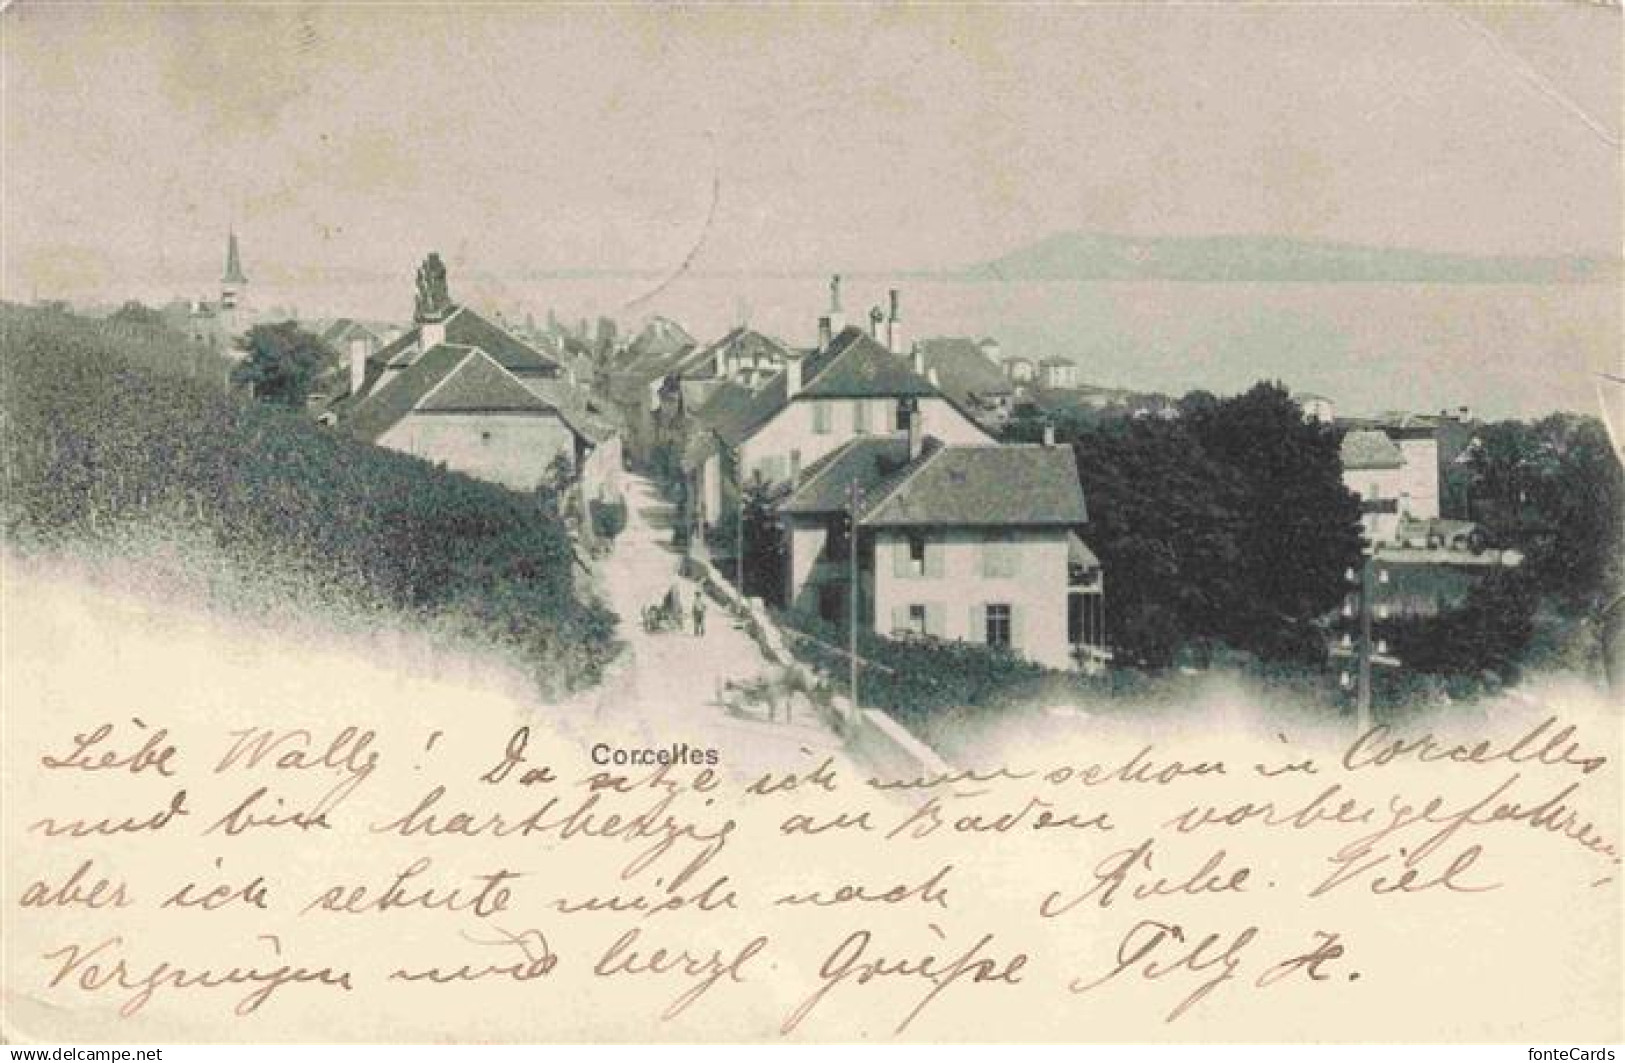 Corcelles
Liebe Wally! Da sitze ich nun schon in Corcelles
und bin hartherzig an Baden vorbeigefahren,
aber ich sehnte mich nach Ruhe. Viel
Vergnügen und herzl. Grüße Tilly H.
www.delcampe.net
fonteCards